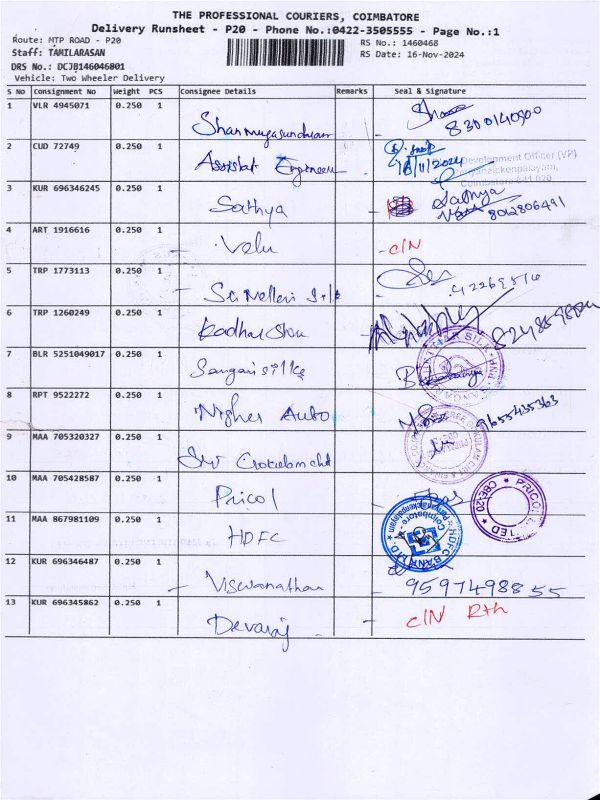 THE PROFESSIONAL COURIERS, COIMBATORE
Delivery Runsheet - P20 - Phone No.:0422-3505555 - Page No.:1
Route: MTP ROAD - P20
RS No.: 1460468
Staff: TAMILARASAN
RS Date: 16-Nov-2024
DRS No.: DCJB146046801
Vehicle: Two Wheeler Delivery
S No Consignment No Weight PCS Consignee Details Remarks Seal & Signature
1 VLR 4945071 0.250 1
Shanmugasundram 8300140900
2 CUD 72749 0.250 1
Assistat Engineer 16/11/2024
Development Officer (VP)
Periyanaickenpalayam,
Coimbatore-641 020
3 KUR 696346245 0.250 1
Sathya Sathya
8012806491
4 ART 1916616 0.250 1
Velu - C/N
5 TRP 1773113 0.250 1
6 TRP 1260249 0.250 1
7 BLR 5251049017 0.250 1
Sangari silks
8 RPT 9522272 0.250 1
Nigher Auto 9655435363
9 MAA 705320327 0.250 1
10 MAA 705428587 0.250 1
Pricol
PRICOL LIMITED
CBE-20
11 MAA 867981109 0.250 1
HDFC
HDFC BANK LTD.
Periyanaickenpalayam
Coimbatore
12 KUR 696346487 0.250 1
Viswanathan 9597498855
13 KUR 696345862 0.250 1
Devaraj - C/N Rth